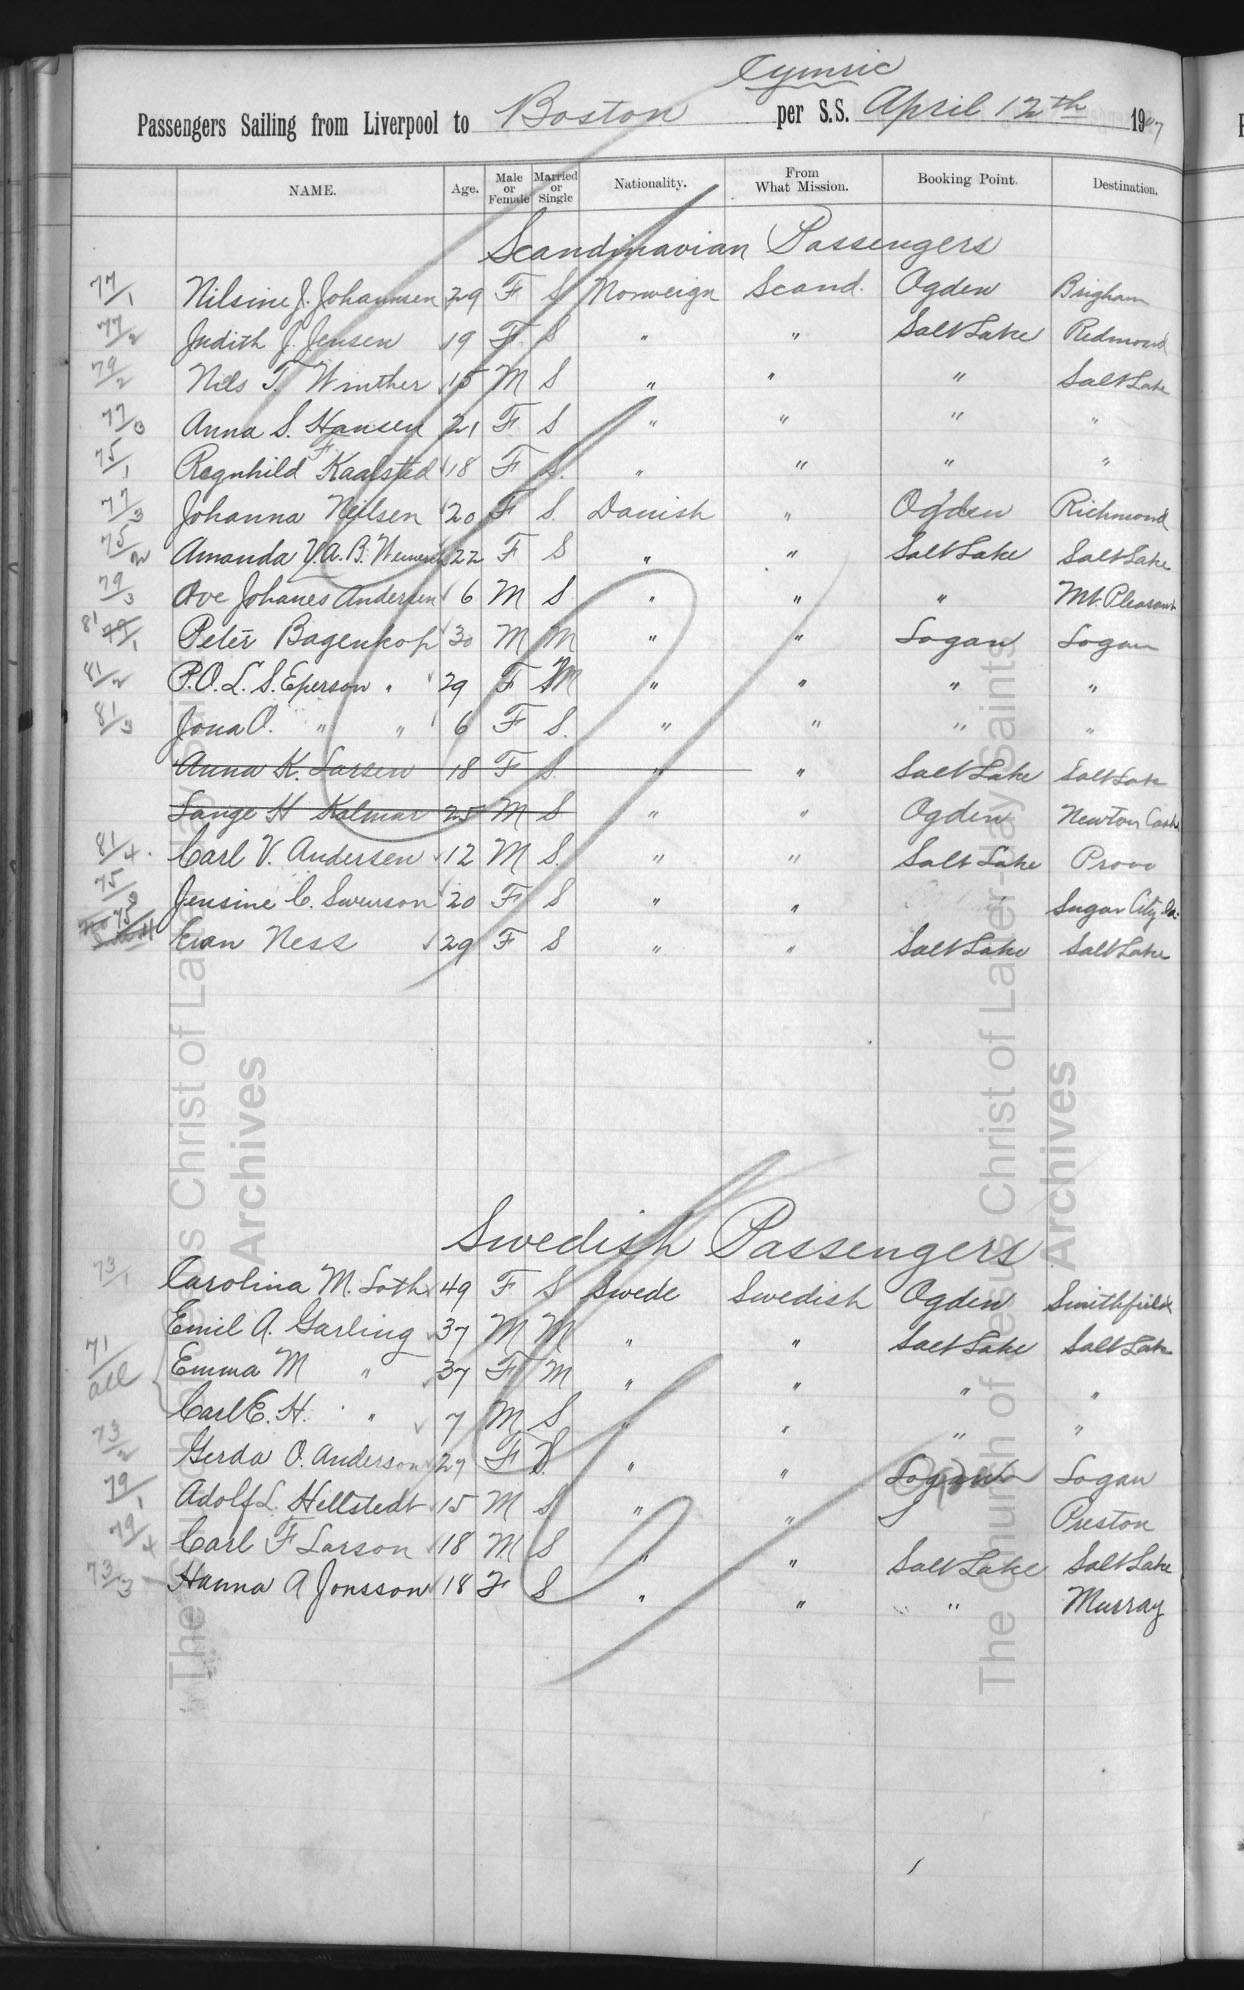 Cymric
Passengers Sailing from Liverpool to Boston per S.S. April 12th 1907
NAME. Age. Male or Female Married or Single Nationality. From What Mission. Booking Point. Destination.
Scandinavian Passengers
77/1 Nilsine J. Johannsen 29 F S Norweign Scand. Ogden Brigham
77/2 Judith J. Jensen 19 F S " " Salt Lake Redmond
79/2 Nils T. Winther 15 M S " " " Salt Lake
77/3 Anna S. Hansen 21 F S " " " "
75/1 Ragnhild F Kaalstad 18 F S. " " " "
77/3 Johanna Neilsen 20 F S. Danish " Ogden Richmond
75/2 Amanda V.A.B. 22 F S " " Salt Lake Salt Lake
79/3 Ove Johanes Andersen 6 M S " " " Mt. Pleasant
81 79/1 Peter Bagenkop 30 M M " " Logan Logan
81/2 P.O.L.S. Eperson " 29 F M " " " "
81/3 Jona O. " " 6 F S. " " " "
Anna K. Larsen 18 F S. " " Salt Lake Salt Lake
Lange H Kalmar 25 M S " " Ogden Newton Cache
81/4. Carl V. Andersen 12 M S. " " Salt Lake Provo
75/3 Jensine C. Swenson 20 F S " " Sugar City Ida.
75/4 Eran Ness 29 F S " " Salt Lake Salt Lake
Swedish Passengers
73/1 Carolina M. Loth 49 F S Swede Swedish Ogden Smithfield
Emil A. Garling 37 M M " " Salt Lake Salt Lake
71/all Emma M " 37 F M " " " "
Carl E. H. " 7 M S " " " "
73/2 Gerda O. Anderson 27 F S. " " Logan Logan
79/1 Adolf L. Hellstedt 15 M S " " Preston
79/4 Carl F Larson 18 M S " " Salt Lake Salt Lake
73/3 Hanna A Jonsson 18 F S " " " Murray
The Church of Jesus Christ of Latter-day Saints
Archives
The Church of Jesus Christ of Latter-day Saints
Archives